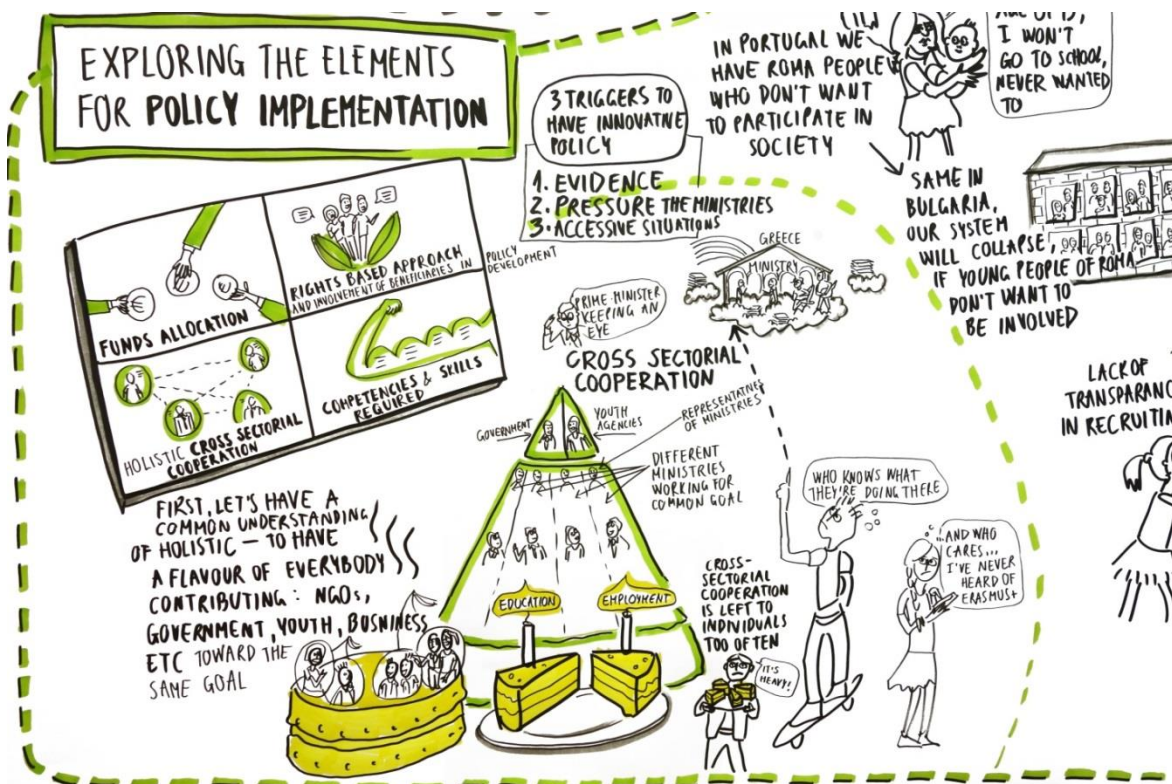 EXPLORING THE ELEMENTS
FOR POLICY IMPLEMENTATION
FUNDS ALLOCATION
RIGHTS BASED APPROACH
AND INVOLVEMENT OF BENEFICIARIES IN
POLICY
DEVELOPMENT
HOLISTIC CROSS SECTORIAL
COOPERATION
COMPETENCIES & SKILLS
REQUIRED
3 TRIGGERS TO
HAVE INNOVATIVE
POLICY
1. EVIDENCE
2. PRESSURE THE MINISTRIES
3. ACCESSIVE SITUATIONS
IN PORTUGAL WE
HAVE ROMA PEOPLE
WHO DON'T WANT
TO PARTICIPATE IN
SOCIETY
AGE OF 15,
I WON'T
GO TO SCHOOL,
NEVER WANTED
TO
SAME IN
BULGARIA,
OUR SYSTEM
WILL COLLAPSE,
IF YOUNG PEOPLE OF ROMA
DON'T WANT TO
BE INVOLVED
GREECE
MINISTRY
PRIME-MINISTER
KEEPING AN
EYE
CROSS SECTORIAL
COOPERATION
GOVERNMENT
YOUTH
AGENCIES
REPRESENTATIVES
OF MINISTRIES
DIFFERENT
MINISTRIES
WORKING FOR
COMMON GOAL
EDUCATION
EMPLOYMENT
FIRST, LET'S HAVE A
COMMON UNDERSTANDING
OF HOLISTIC – TO HAVE
A FLAVOUR OF EVERYBODY
CONTRIBUTING: NGOs,
GOVERNMENT, YOUTH, BOSNINESS
ETC TOWARD THE
SAME GOAL
CROSS-
SECTORIAL
COOPERATION
IS LEFT TO
INDIVIDUALS
TOO OFTEN
IT'S
HEAVY!
WHO KNOWS WHAT
THEY'RE DOING THERE
...AND WHO
CARES...
I'VE NEVER
HEARD OF
ERASMUS+
LACK OF
TRANSPARANC
IN RECRUITIN